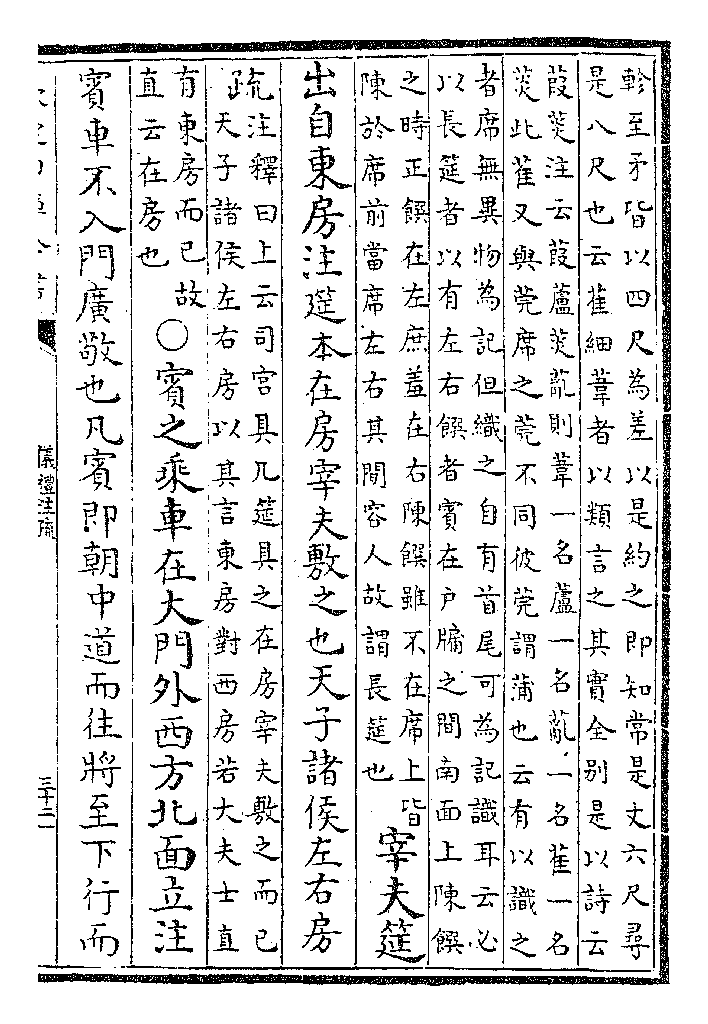 軫至矛皆以四尺為差以是約之即知常是丈六尺尋
是八尺也云萑細葦者以類言之其實全别是以詩云
葭菼注云葭蘆菼薍則葦一名蘆一名薍一名萑一名
菼此萑又與莞席之莞不同彼莞謂蒲也云有以識之
者席無異物為記但織之自有首尾可為記識耳云必
以長筵者以有左右饌者賓在戶牖之間南面上陳饌
之時正饌在左庶羞在右陳饌雖不在席上皆
陳於席前當席左右其間容人故謂長筵也
宰夫筵
出自東房注筵本在房宰夫敷之也天子諸侯左右房
疏注釋曰上云司宫具几筵具之在房宰夫敷之而已
天子諸侯左右房以其言東房對西房若大夫士直
有東房而已故
直云在房也
○賓之乘車在大門外西方北面立注
賓車不入門廣敬也凡賓即朝中道而往將至下行而
儀禮注疏
三十二